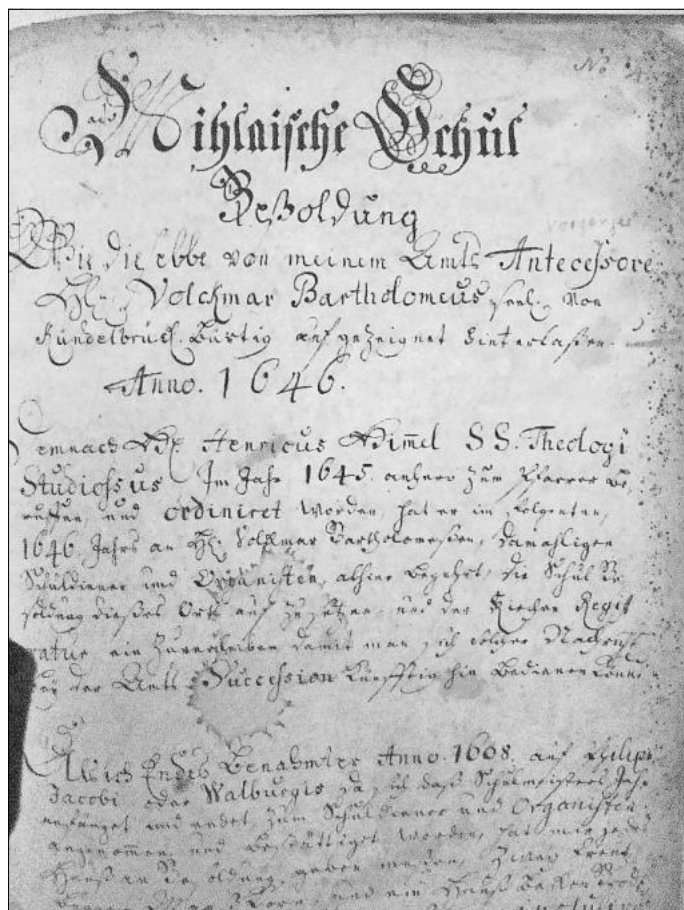 No
Mihlaische Schul
Beßoldung
Wie dieselbe von meinem Amts Antecessore
Hr. Volckmar Bartholomeus seel. von
Kündelbrück bürtig auf gezeignet hinterlaßen.
Anno. 1646.
Demnach Hr. Henricus Himmel SS. Theologi
Studiossus Im Jahr 1645. anhero zum Pfarrer be-
ruffen, und ordiniret worden, hat er im folgenten,
1646. Jahrs an Hr. Volckmar Bartholomessen, damahligen
Schuldiener und Organisten, alhier begehrt, die Schul Be
soldung dießes Orts auf zu setzen, und der Kirchen Regist
ratur ein zuverleiben damit man sich solcher Nachricht
der Amts Succession künfftig hin bedienen könne
Alß ich Endes Benahmter Anno. 1608. auf Philippi
Jacobi oder Walburgis da sich daß Schulmeisters Jahr
anfänget und endet, zum Schuldiener und Organisten
angenommen, und bestättiget worden, hat mir jedes
Hauß an Besoldung geben müßen,
Korn, und ein Hauß backen Brod